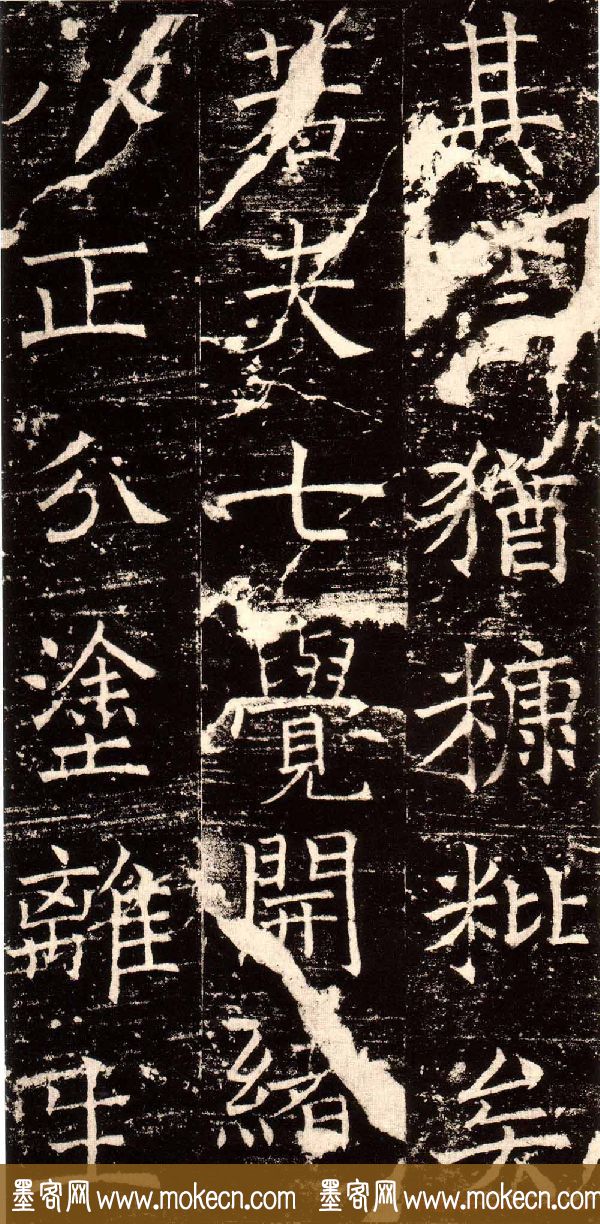 其猶糠粃矣
若夫七覺開緒
八正分塗離生
墨客网 www.mokecn.com 墨客网 www.mokecn.com